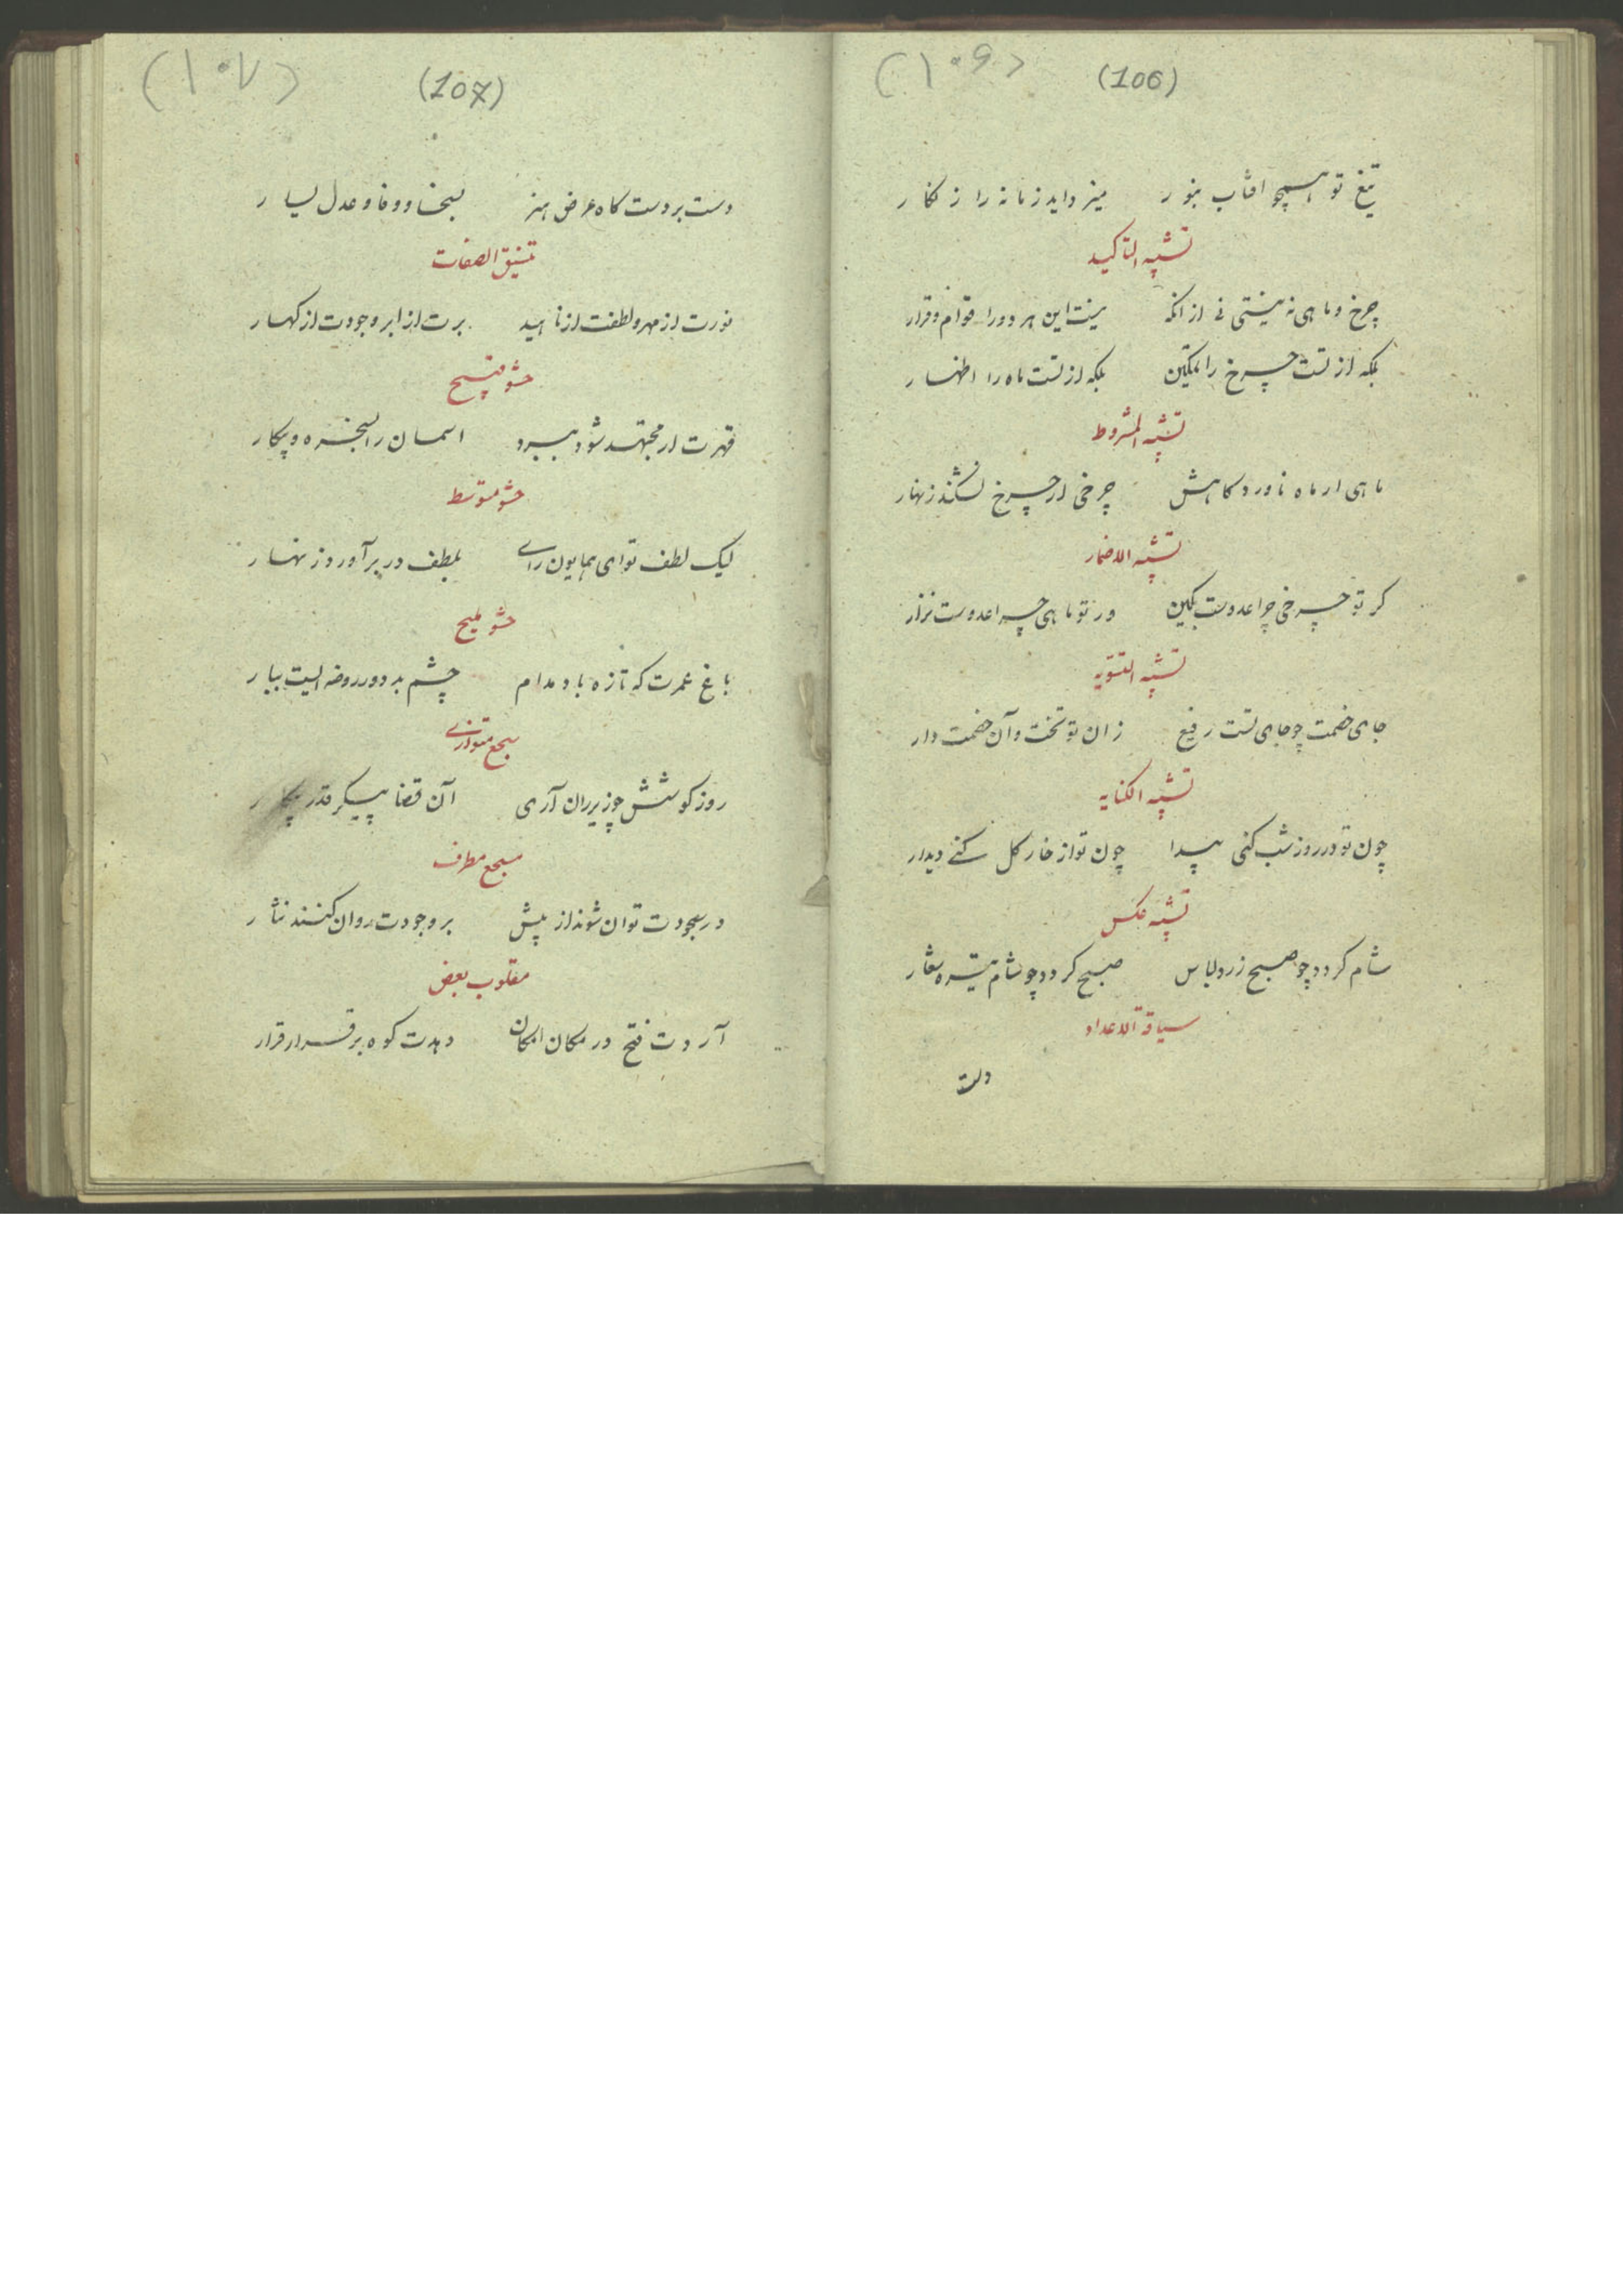 (۱۰۶)
(106)
تیغ تو همچو افتاب بنور میزداید زمانه را زنکار
تشبیه التاکید
چرخ و ماهی نه نیستی نی ازانکه نیست این هر دو را قوام و قرار
بلکه از تست چرخ را تمکین بلکه از تست ماه را اظهار
تشبیه المشروط
ماهی ار ماه ناورد کاهش چرخی ار چرخ نشکند زنهار
تشبیه الاضمار
کر تو چرخی چرا عدوست نکین ور تو ماهی چرا عدوست نزار
تشبیه التسویه
جای خصمت چو جای تست رفیع زان تو تخت و آن خصمت دار
تشبیه الکنایه
چون تو در روز شب کنی پیدا چون تو از خار کل کنے دیدار
تشبیه عکس
شام کردد چو صبح زرد لباس صبح کردد چو شام تیره شعار
سیاقة الاعداد
دست
(۱۰۷)
(107)
دست بردست کاه عرض هنر بسخا و وفا و عدل یسار
تنسیق الصفات
نورت از مهر و لطفت از ناهید برت از ابر و جودت از کهسار
حشو قبیح
قهرت ار مجتهد شود ببرد اسمان را بسخره و بیکار
حشو متوسط
لیک لطف تو ای همایون راے بلطف در بر آورد زنهار
حشو ملیح
باغ عمرت که تازه باد مدام چشم بد دور روضه ایست ببار
سجع متوازے
روز کوشش چو زیر ران آری آن قضا پیکر قدر پیکار
سجع مطرف
در سجودت توان شوند از پیش بر وجودت روان کنند نثار
مقلوب بعض
آردت فتح در مکان امکان دهدت کوه بر قرار قرار